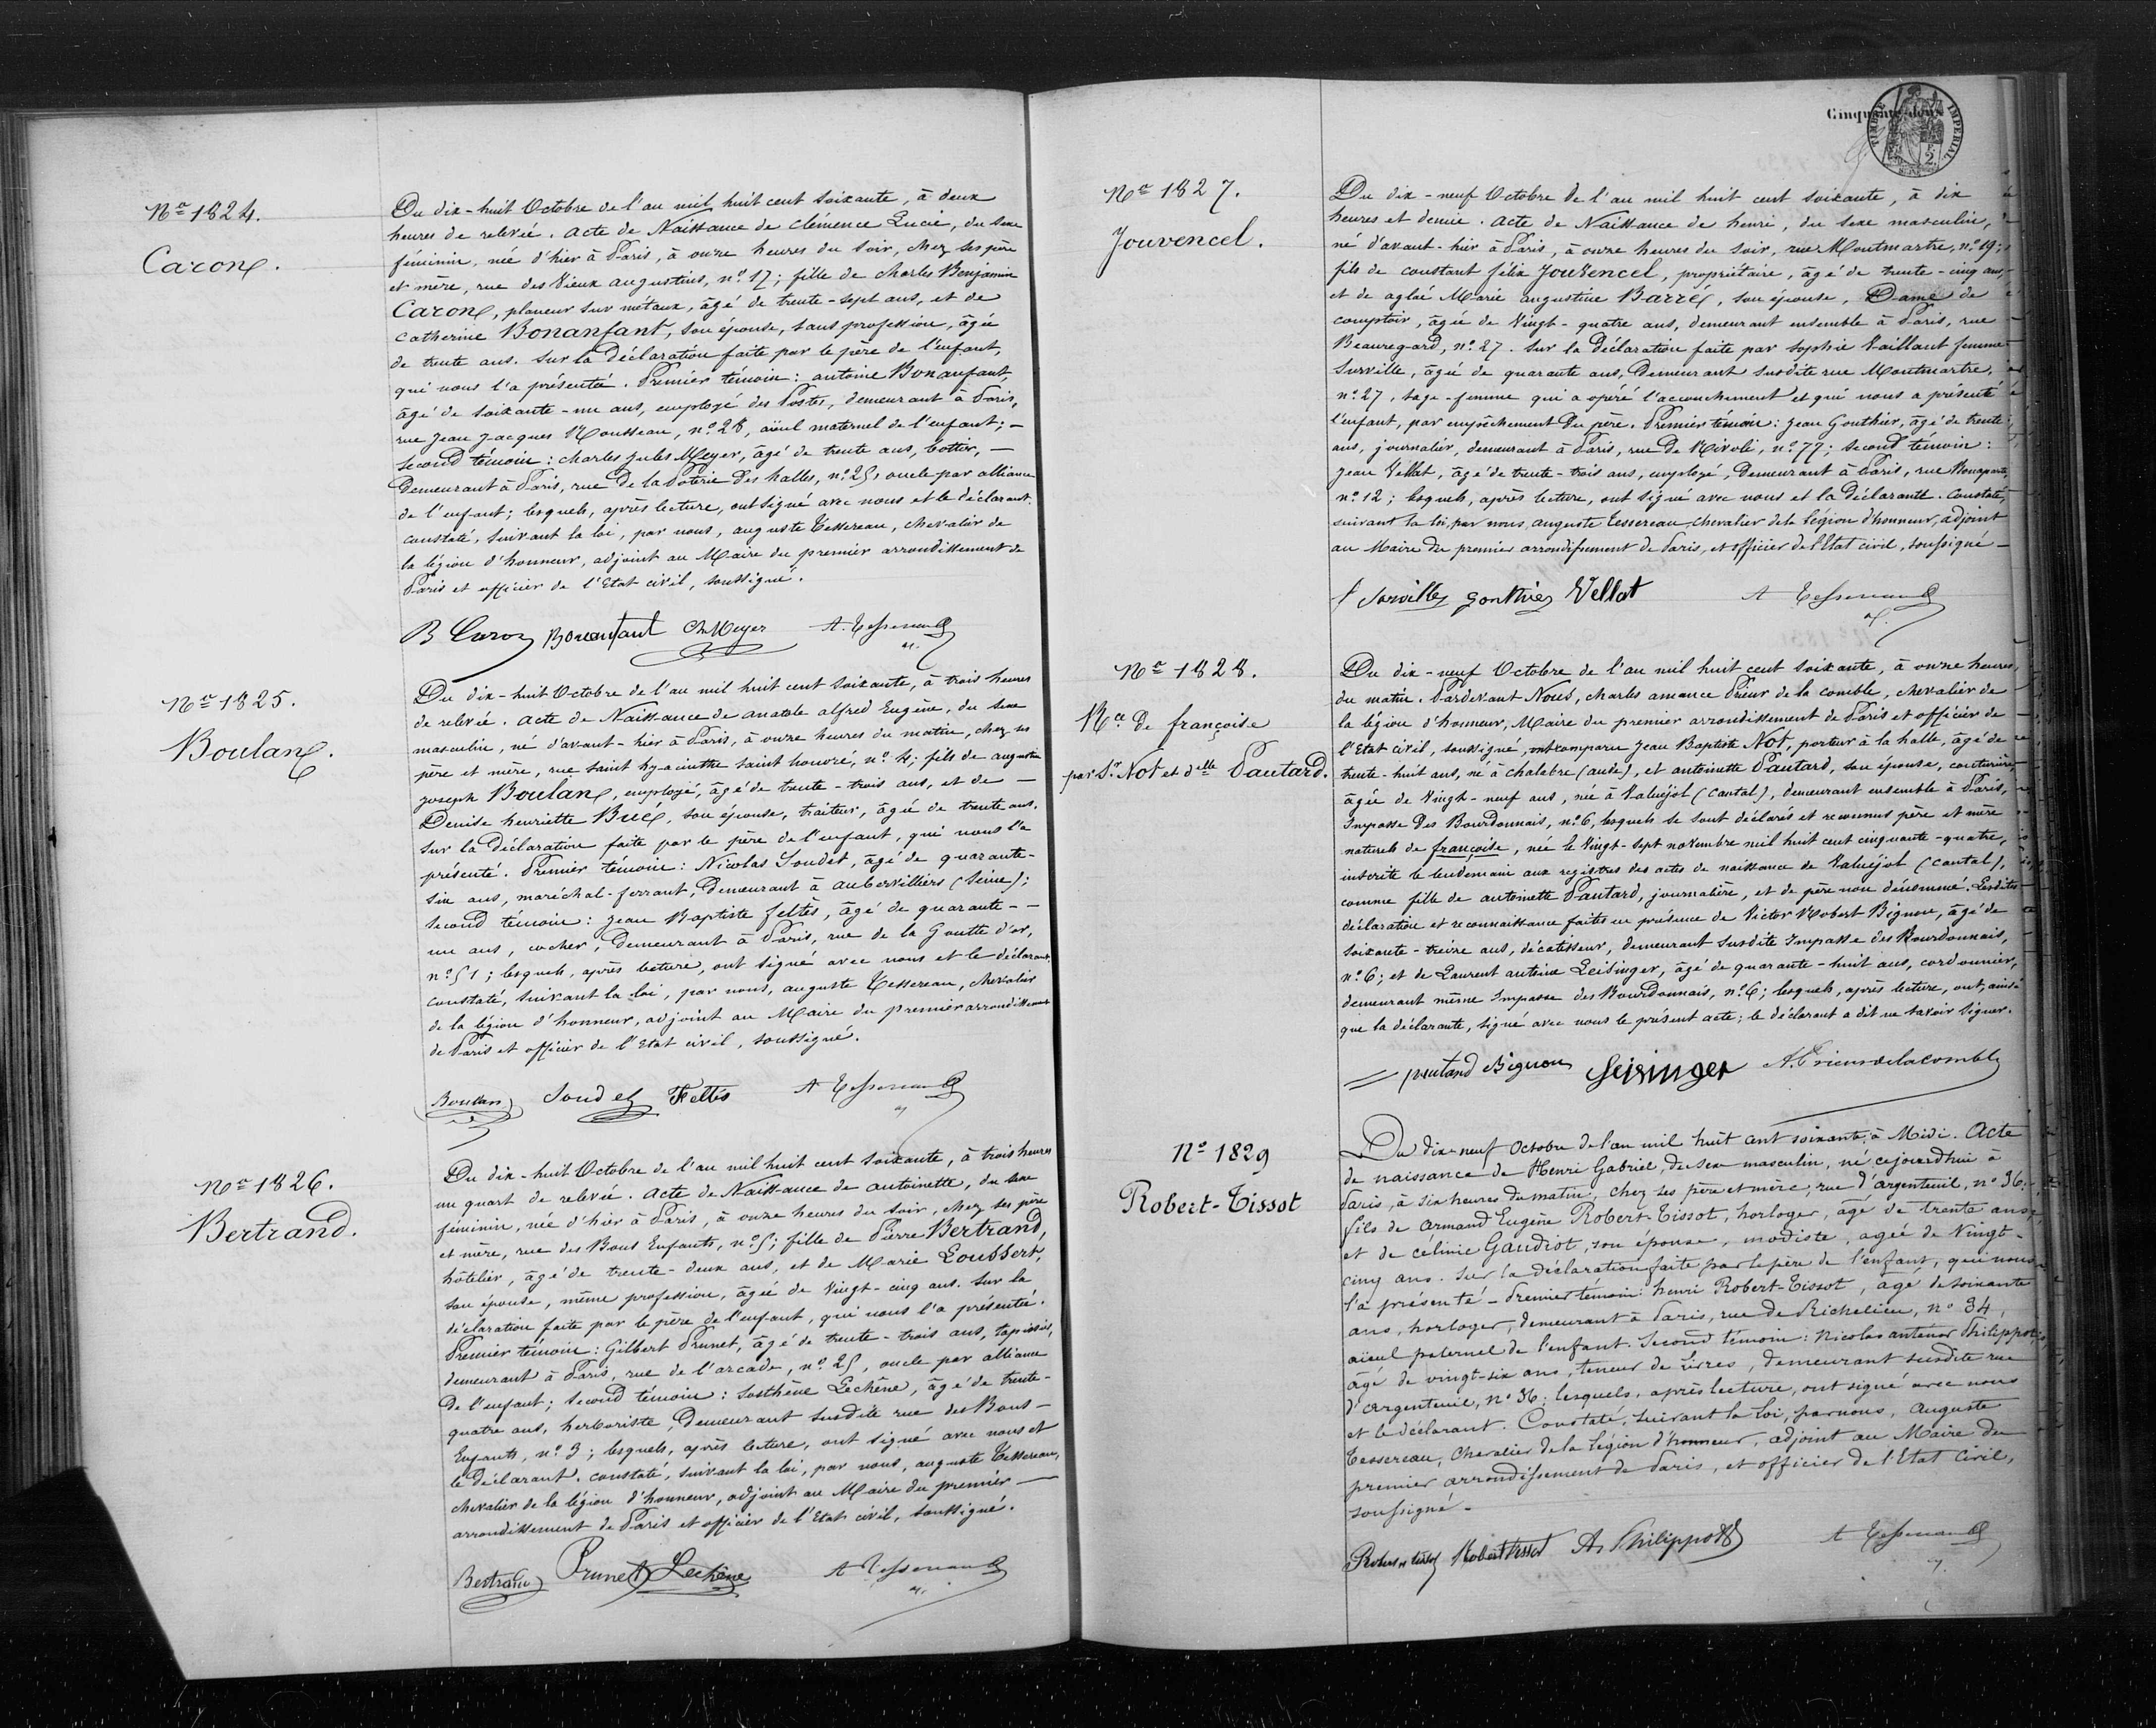 Nº 1824.
Caron.
Du dix-huit Octobre de l'an mil huit cent soixante, à deux
heures de relevée. acte de Naissance de Clémence Lucie, du sexe
féminin, née d'hier à Paris, à onze heures du soir, chez ses père
et mère, rue des Vieux augustins, nº 17; fille de Charles Benjamin
Caron, planeur sur métaux, âgé de trente-sept ans, et de
Catherine Bonanfant, son épouse, sans profession, âgée
de trente ans. Sur la déclaration faite par le père de l'enfant,
qui nous l'a présenté. Premier témoin: antoine Bonanfant,
âgé de soixante-un ans, employé des Postes, demeurant à Paris,
rue Jean Jacques Rousseau, nº 28, aïeul maternel de l'enfant; —
second témoin: Charles Jules Meyer, âgé de trente ans, bottier, —
Demeurant à Paris, rue de la Poterie des halles, nº 25, oncle par alliance
de l'enfant; lesquels, après lecture, ont signé avec nous et le déclarant.
constaté, suivant la loi, par nous, auguste Tessereau, chevalier de
la légion d'honneur, adjoint au Maire du premier arrondissement de
Paris et officier de l'Etat civil, soussigné.
B Caron Bonanfant Ch Meyer A. Tessereau
Nº 1825.
Boulan.
Du dix-huit Octobre de l'an mil huit cent soixante, à trois heures
de relevée. acte de Naissance de anatole alfred Eugène, du sexe
masculin, né d'avant-hier à Paris, à onze heures du matin, chez ses
père et mère, rue saint hyacinthe saint honoré, nº 4; fils de augustin
joseph Boulan, employé, âgé de trente-trois ans, et de —
Denise henriette Bué, son épouse, traiteur, âgée de trente ans.
sur la déclaration faite par le père de l'enfant, qui nous l'a
présenté. Premier témoin: Nicolas Soudet, âgé de quarante-
six ans, maréchal-ferrant, Demeurant à aubervilliers (Seine);
second témoin: Jean Baptiste Feltès, âgé de quarante-
un ans, cocher, Demeurant à Paris, rue de la Goutte d'or,
nº 51; lesquels, après lecture, ont signé avec nous et le déclarant.
constaté, suivant la loi, par nous, auguste Tessereau, chevalier
de la légion d'honneur, adjoint au Maire du premier arrondissement
de Paris et officier de l'Etat civil, soussigné.
Boulan Soudet Feltès A Tessereau
Nº 1826.
Bertrand.
Du dix-huit Octobre de l'an mil huit cent soixante, à trois heures
un quart de relevée. acte de Naissance de antoinette, du sexe
féminin, née d'hier à Paris, à onze heures du soir, chez ses père
et mère, rue des Bons Enfants, nº 5; fille de Pierre Bertrand,
hôtelier, âgé de trente-deux ans, et de Marie Loubbert,
son épouse, même profession, âgée de vingt-cinq ans. sur la
déclaration faite par le père de l'enfant, qui nous l'a présentée.
Premier témoin: Gilbert Prunet, âgé de trente-trois ans, tapissier,
demeurant à Paris, rue de l'arcade, nº 25, oncle par alliance
de l'enfant; second témoin: Sosthène Lechêne, âgé de trente-
quatre ans, herboriste, Demeurant susdite rue des Bons-
Enfants, nº 3; lesquels, après lecture, ont signé avec nous et
le déclarant. constaté, suivant la loi, par nous, auguste Tessereau,
chevalier de la légion d'honneur, adjoint au Maire du premier —
arrondissement de Paris et officier de l'Etat civil, soussigné.
Bertrand Prunet Lechêne A Tessereau
Cinquante-deux
TIMBRE IMPERIAL
Nº 1827.
Jouvencel.
Du dix-neuf Octobre de l'an mil huit cent soixante, à dix
heures et demie. acte de Naissance de henri, du sexe masculin,
né d'avant-hier à Paris, à onze heures du soir, rue Montmartre, nº 19;
fils de constant félix Jouvencel, propriétaire, âgé de trente-cinq ans,
et de aglaé Marie augustine Barré, son épouse, Dame de
comptoir, âgée de vingt-quatre ans, demeurant ensemble à Paris, rue
Beauregard, nº 27. sur la déclaration faite par sophie Vaillant femme
Surville, âgée de quarante ans, Demeurant susdite rue Montmartre,
nº 27, sage-femme qui a opéré l'accouchement et qui nous a présenté
l'enfant, par empêchement du père. Premier témoin: Jean Gonthier, âgé de trente
ans, journalier, demeurant à Paris, rue de Rivoli, nº 77; second témoin:
Jean Vellat, âgé de trente-trois ans, employé, Demeurant à Paris, rue Bonaparte,
nº 12; lesquels, après lecture, ont signé avec nous et la déclarante. Constaté,
suivant la loi, par nous, auguste Tessereau chevalier de la légion d'honneur, adjoint
au Maire du premier arrondissement de Paris, et officier de l'Etat civil, soussigné —
f Surville Gonthier Vellat A Tessereau
Nº 1828.
Rce de françoise
par Sr Not et dlle Pautard.
Du dix-neuf Octobre de l'an mil huit cent soixante, à onze heures
du matin. Pardevant Nous, charles amance Prieur de la comble, chevalier de
la légion d'honneur, Maire du premier arrondissement de Paris et officier de
l'Etat civil, soussigné, ont comparu Jean Baptiste Not, porteur à la halle, âgé de
trente-huit ans, né à chalabre (aude), et antoinette Pautard, son épouse, couturière,
âgée de vingt-neuf ans, née à Valuéjol (cantal), demeurant ensemble à Paris,
Impasse des Bourdonnais, nº 6, lesquels se sont déclarés et reconnus père et mère
naturels de françoise, née le vingt-sept novembre mil huit cent cinquante-quatre,
inscrite le lendemain aux registres des actes de naissance de Valuéjol (cantal),
comme fille de antoinette Pautard, journalière, et de père non dénommé. Lesdites
déclaration et reconnaissance faites en présence de Victor Robert Bignon, âgé de
soixante-treize ans, décatisseur, demeurant susdite Impasse des Bourdonnais,
nº 6; et de Laurent antoine Leisinger, âgé de quarante-huit ans, cordonnier,
demeurant même Impasse des Bourdonnais, nº 6; lesquels, après lecture, ont, ainsi
que la déclarante, signé avec nous le présent acte; le déclarant a dit ne savoir signer.
pautard Bignon Leisinger A. Prieur de la comble
Nº 1829
Robert-Tissot
Du dix-neuf Octobre de l'an mil huit cent soixante, à Midi. Acte
de naissance de Henri Gabriel, du sexe masculin, né cejourd'hui à
Paris, à six heures du matin, chez ses père et mère, rue d'argenteuil, nº 36.
fils de Armand Eugène Robert-Tissot, horloger, âgé de trente ans,
et de célinie Gaudiot, son épouse, modiste, agée de Vingt-
cinq ans. Sur la déclaration faite par le père de l'enfant, qui nous
l'a présenté — Premier témoin: henri Robert-Tissot, âgé de soixante
ans, horloger, demeurant à Paris, rue de Richelieu, nº 34,
aïeul paternel de l'enfant. Second témoin: Nicolas antenor Philippot,
âgé de vingt-six ans, teneur de livres, demeurant susdite rue
d'argenteuil, nº 36; lesquels, après lecture, ont signé avec nous
et le déclarant. Constaté, suivant la loi, par nous, Auguste
Tessereau, Chevalier de la Légion d'honneur, adjoint au Maire du
premier arrondissement de Paris, et officier de l'Etat Civil,
soussigné —
Robert-Tissot Robert Tissot A. Philippot A Tessereau